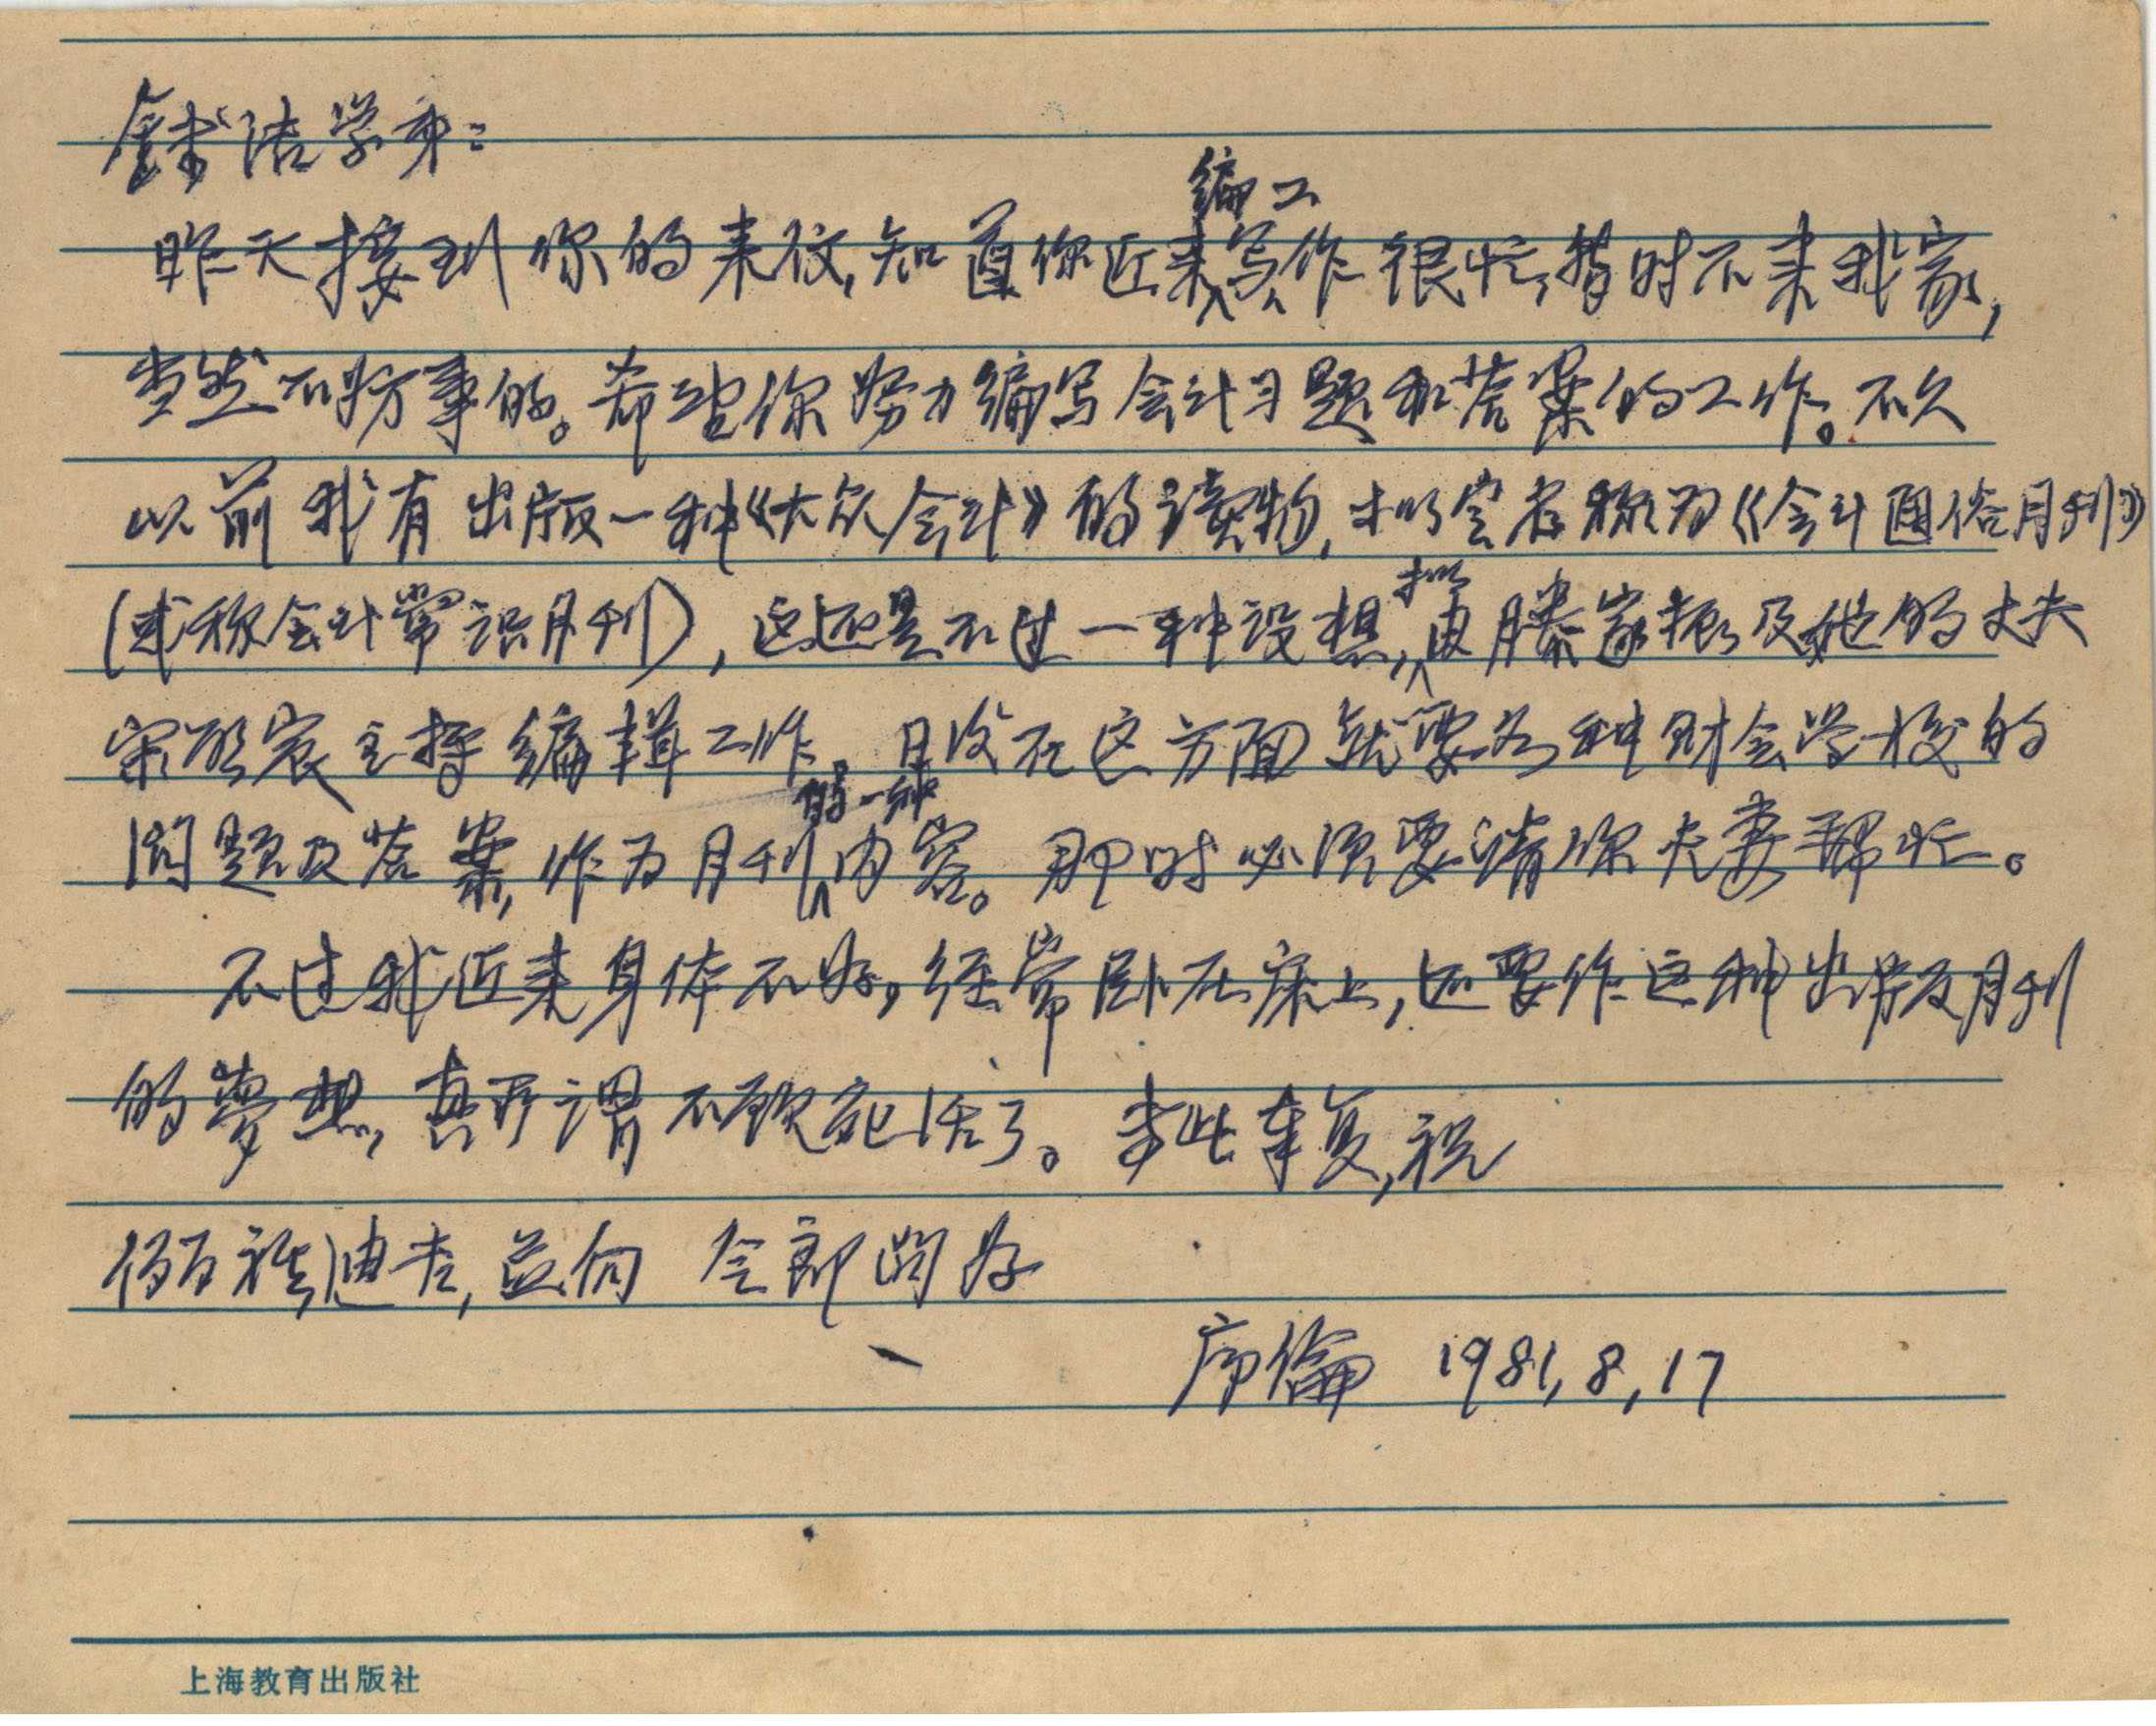 铢法学弟：
昨天接到你的来信，知道你近来编写工作很忙，暂时不来我家，
当然不妨事的。希望你努力编写会计习题和答案的工作。不久
以前我有出版一种《大众会计》的读物，拟定名称为《会计通俗月刊》
（或称会计常识月刊），这还是不过一种设想，拟由滕家振及她的丈夫
宋 宸主持编辑工作。日后在这方面就要各种财会学校的
问题及答案，作为月刊的一种内容。那时必须要请你夫妻帮忙。
不过我近来身体不好，经常卧在床上，还要作这种出版月刊
的夢想，真所谓不顾死活了。专此奉复，祝
俪祉 迪吉，並向 令郎问好
序倫 1981，8，17
上海教育出版社